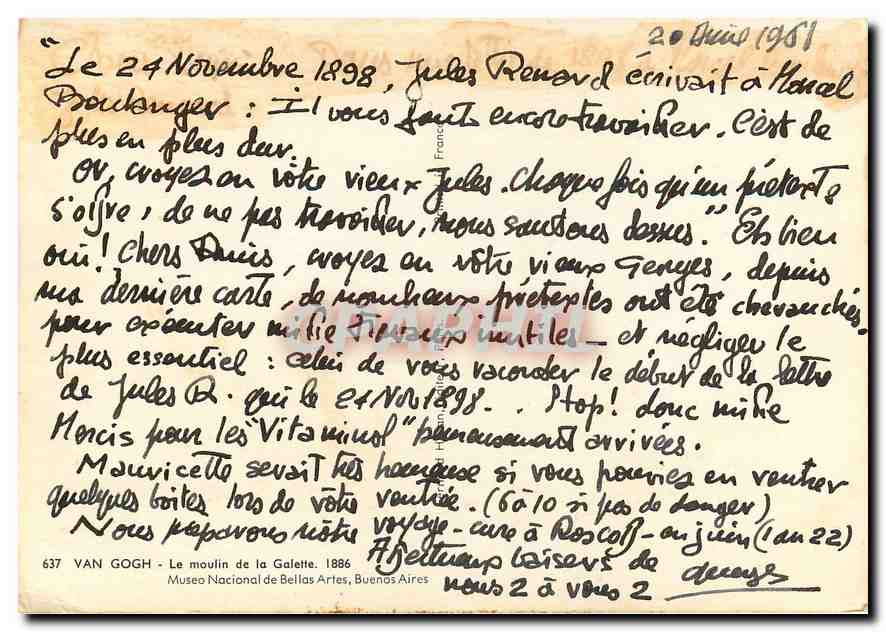 20 1961
"Le 24 Novembre 1898, Jules Renard écrivait à Marcel
Boulanger : Il vous faut encore travailler. C'est de
plus en plus dur.
Or, croyez en vôtre vieux Jules. Chaque fois qu'un prétexte
s'offre, de ne pas travailler, nous sautons dessus." Eh bien
oui! Chers Amis, croyez en vôtre vieux Georges, depuis
ma dernière carte, de nombreux prétextes ont été chevauchés,
pour exécuter mille travaux inutiles - et négliger le
plus essentiel : celui de vous raconter le début de la lettre
de Jules R. qui le 24 Nov 1898. . Stop! donc mille
Mercis pour les "Vitaminol" heureusement arrivées.
Mauricette serait très heureuse si vous pouviez en rentrer
quelques boites lors de vôtre rentrée. (6 à 10 si pas de danger)
Nous préparons nôtre voyage - cure à Roscoff - en juin (1 au 22)
Affectueux baisers de
nous 2 à vous 2 Georges
637 VAN GOGH - Le moulin de la Galette. 1886
Museo Nacional de Bellas Artes, Buenos Aires
CPAPHIL